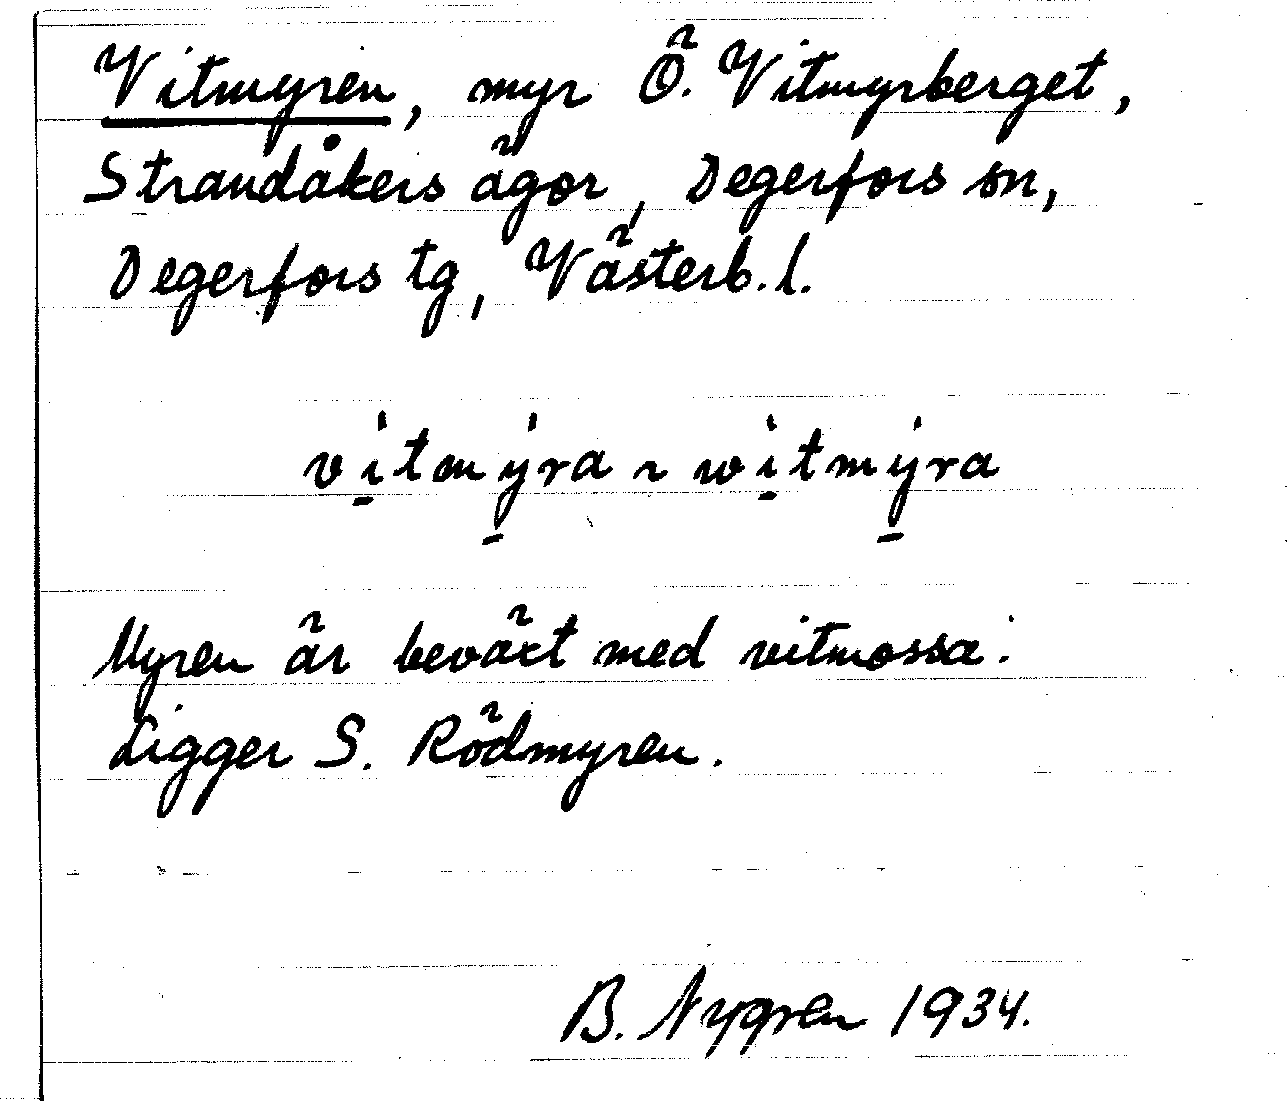 Vitmyren, myr Ö. Vitmyrberget,
Strandåkers ägor, Degerfors sn,
Degerfors tg, Västerb. l.
vi̱tmy̱ra ~ wi̱tmy̱ra
Myren är beväxt med vitmossa.
Ligger S. Rödmyren.
B. Nygren 1934.